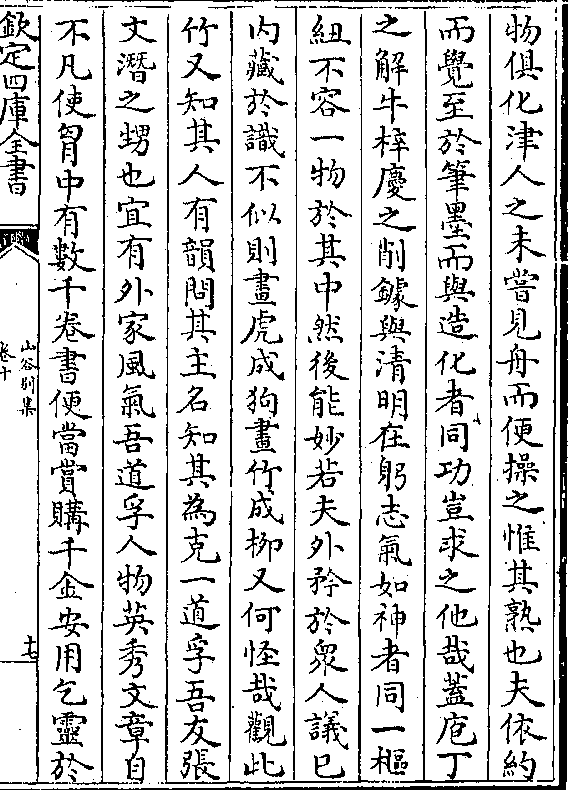 物俱化津人之未嘗見舟而便操之惟其熟也夫依約
而覺至於筆墨而與造化者同功豈求之他哉蓋庖丁
之解牛梓慶之削鐻與清明在躬志氣如神者同一樞
紐不容一物於其中然後能妙若夫外矜於衆人議已
内藏於識不似則畫虎成狗畫竹成栁又何怪哉觀此
竹又知其人有韻問其主名知其為克一道孚吾友張
文潛之甥也宜有外家風氣吾道孚人物英秀文章自
不凡使胷中有數千卷書便當賞購千金安用乞靈於
欽定四庫全書
山谷别集
卷十
十七